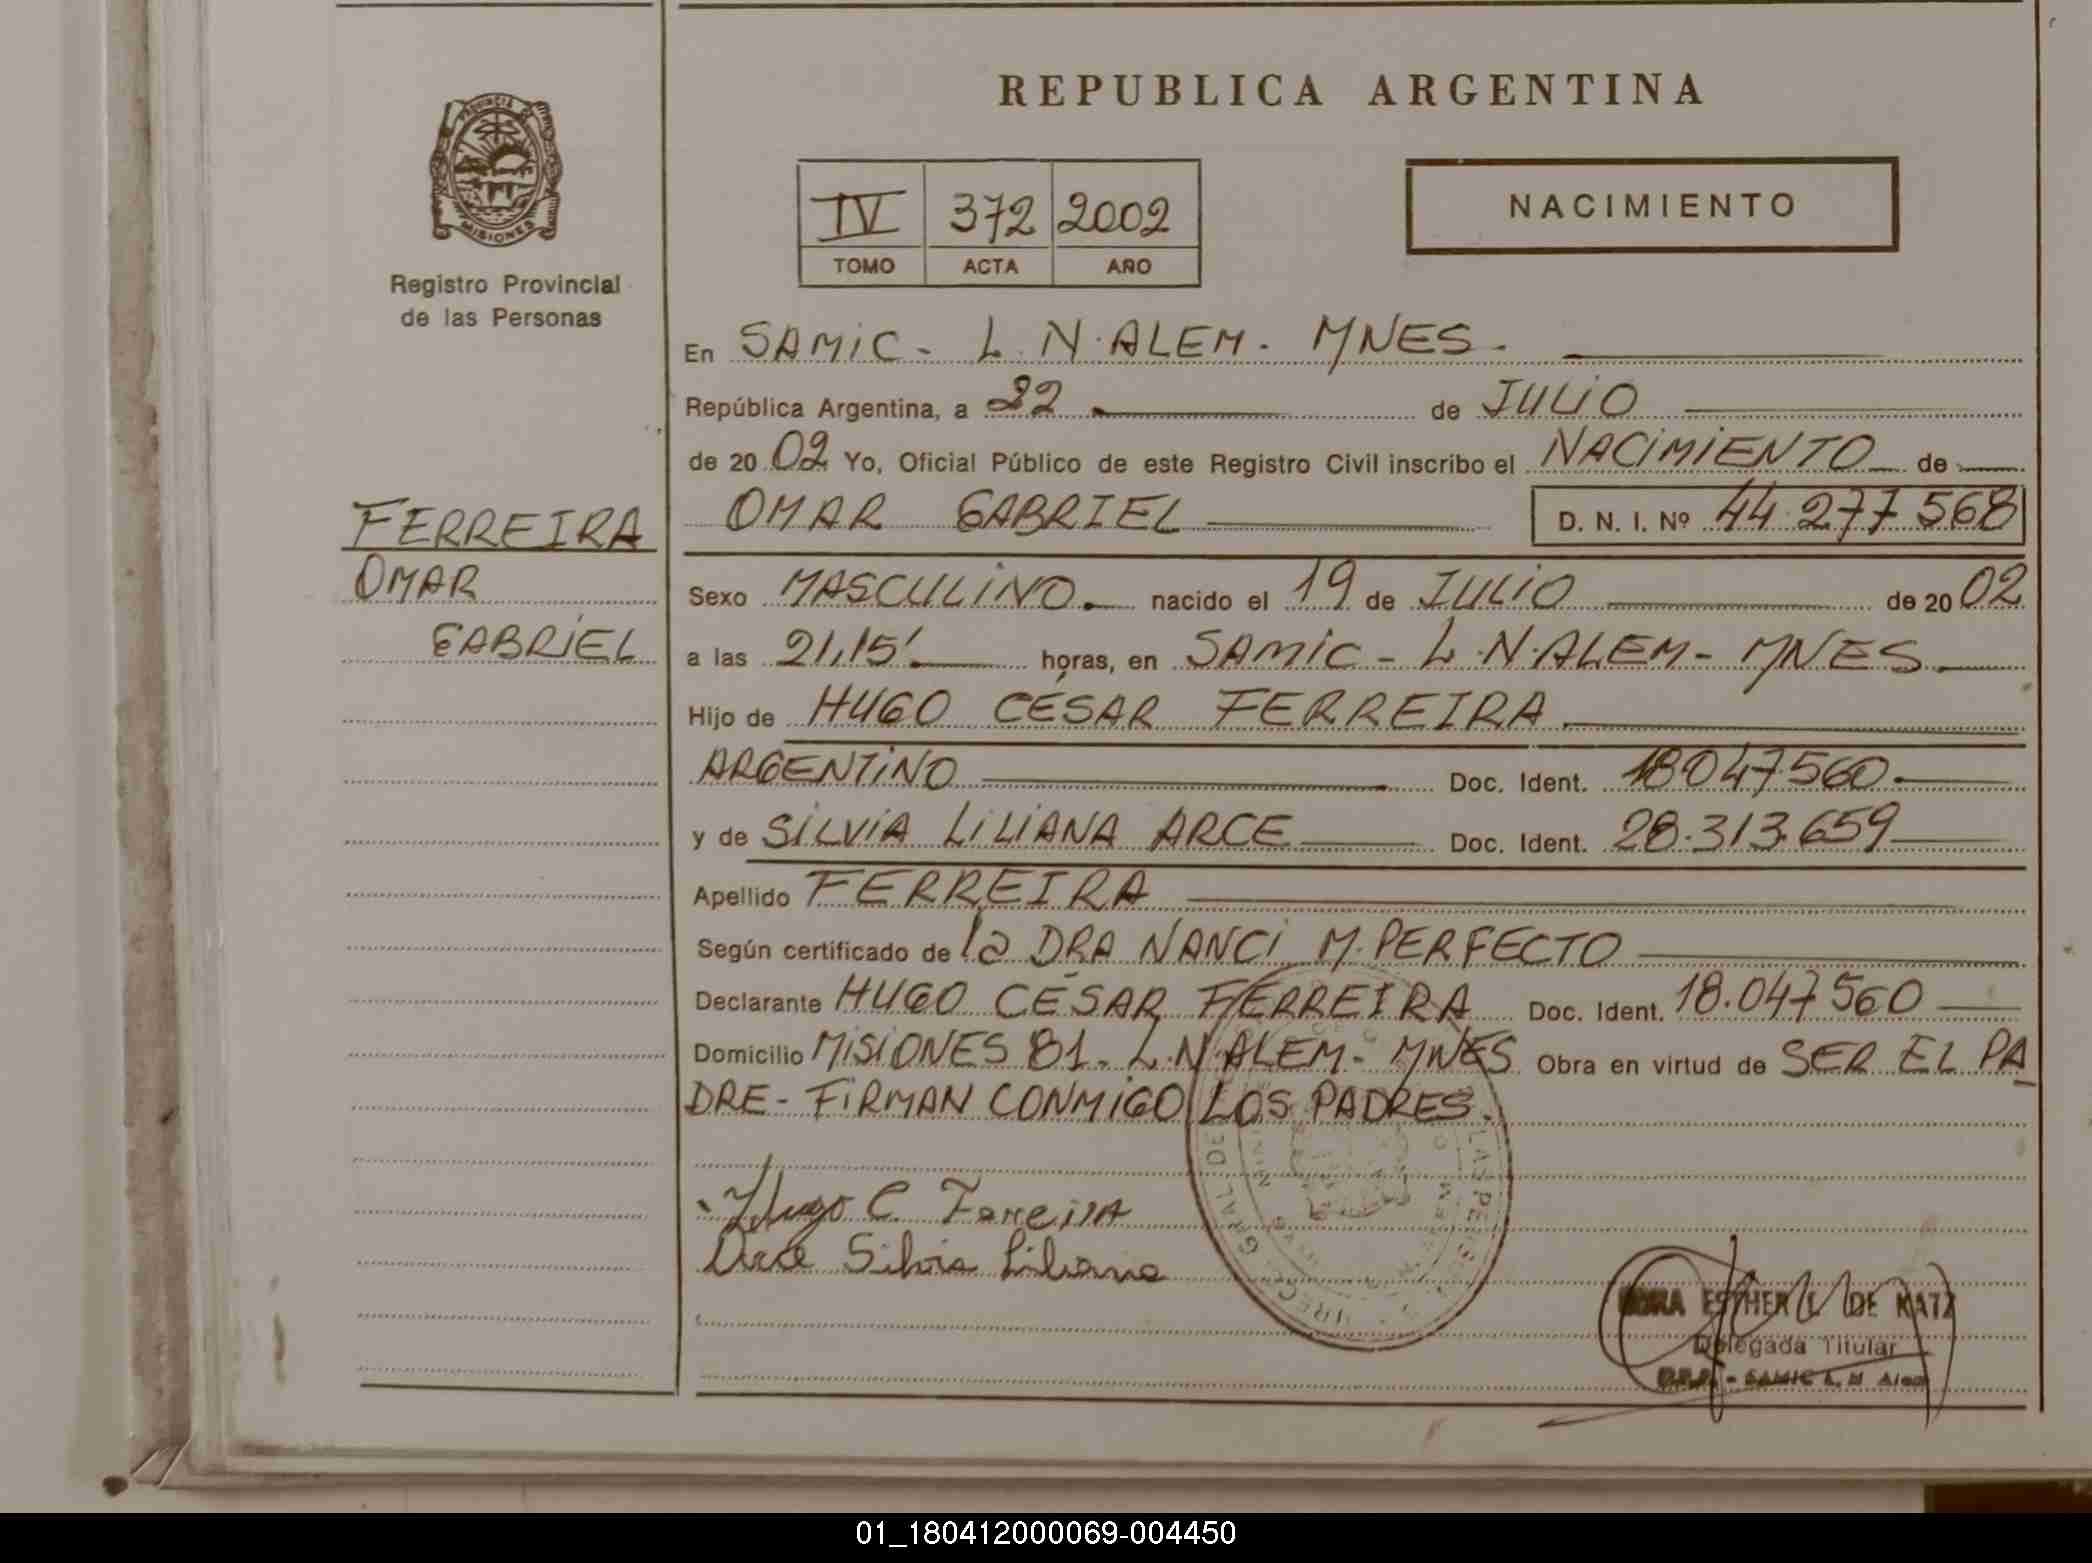 REPUBLICA ARGENTINA
PROVINCIA DE MISIONES
Registro Provincial
de las Personas
IV 372 2002
TOMO ACTA AÑO
NACIMIENTO
En SAMIC - L.N.ALEM - MNES -
República Argentina, a 22 de JULIO
de 20 02 Yo, Oficial Público de este Registro Civil inscribo el NACIMIENTO de
OMAR GABRIEL D. N. I. Nº 44.277.568
FERREIRA
OMAR
GABRIEL
Sexo MASCULINO. nacido el 19 de JULIO de 20 02
a las 21,15' horas, en SAMIC - L.N.ALEM - MNES
Hijo de HUGO CÉSAR FERREIRA
ARGENTINO Doc. Ident. 18.047.560
y de SILVIA LILIANA ARCE Doc. Ident. 28.313.659
Apellido FERREIRA
Según certificado de la DRA NANCI M. PERFECTO
Declarante HUGO CÉSAR FERREIRA Doc. Ident. 18.047.560
Domicilio MISIONES 81 - L.N.ALEM - MNES Obra en virtud de SER EL PA
DRE - FIRMAN CONMIGO LOS PADRES.
Hugo C. Ferreira
Arce Silvia Liliana
ESTHER L. DE KATZ
Delegada Titular
SAMIC L. N. Alem
01_180412000069-004450